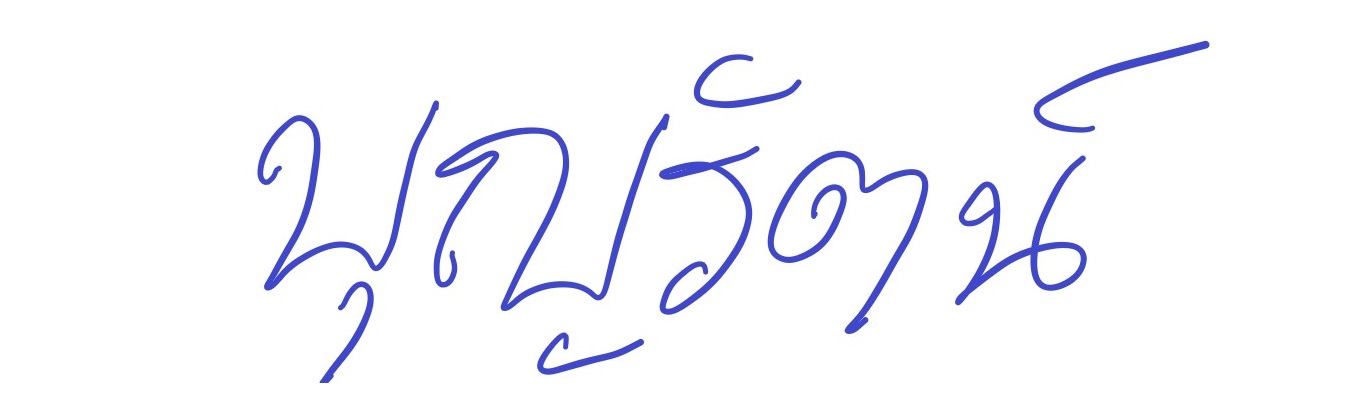 บุญรัตน์